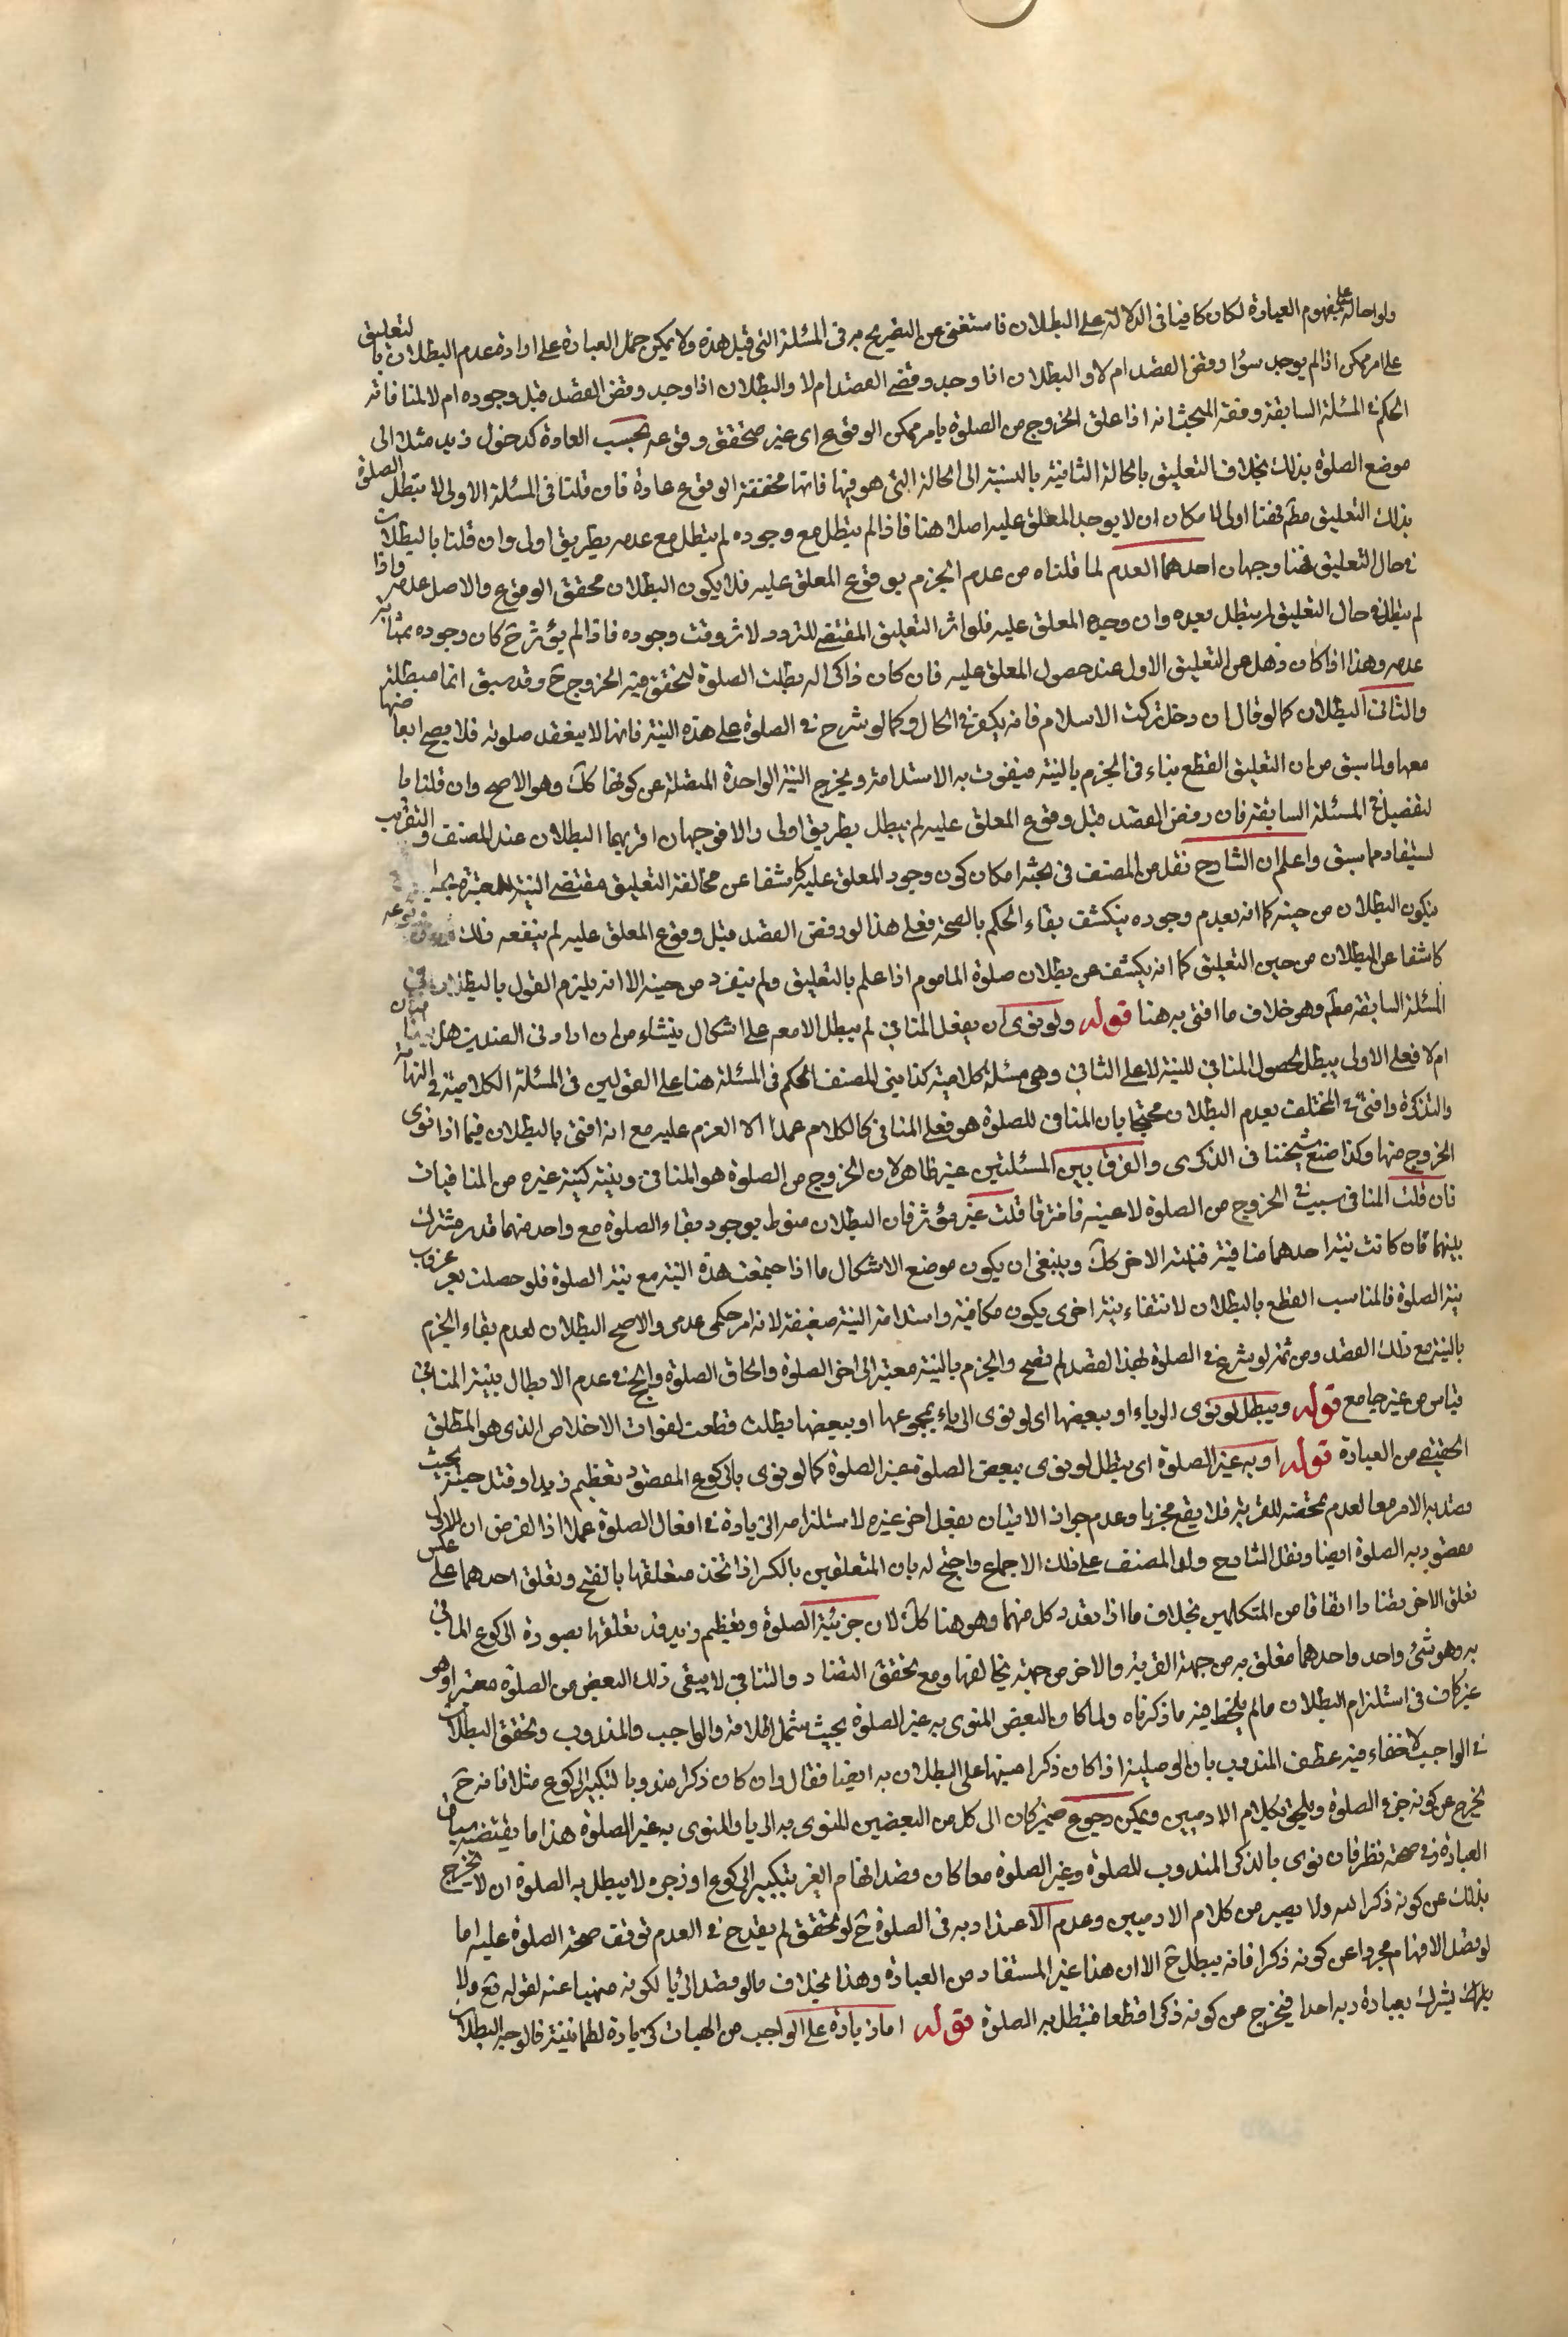 ولو احاله على مفهوم العبادة لكان كافيا فى الدلالة على البطلان فاستغنى عن التصريح به فى المسئلة التى قبل هذه ولا يمكن حمل العبارة على ارادة عدم البطلان بالتعليق
على امر ممكن اذا لم يوجد سواء رفض القصد ام لا والبطلان اذا وجد ورفض القصد ام لا والبطلان اذا وجد ورفض القصد قبل وجوده ام لا لمنافاته
الحكم فى المسئلة السابقة وفقه المبحث انه اذا علق الخروج من الصلوة بامر ممكن الوقوع اى غير متحقق وقوعه بحسب العادة كدخول زيد مثلا الى
موضع الصلوة بذلك بخلاف التعليق بالحالة الثانية بالنسبة الى الحالة التى هو فيها فانها محققة الوقوع عادة فان قلنا فى المسئلة الاولى لا تبطل الصلوة
بذلك التعليق مطم فهنا اولى لا مكان ان لا يوجد المعلق عليه اصلا هنا فاذا لم يبطل مع وجوده لم يبطل مع عدمه بطريق اولى وان قلنا بالبطلان
فى حال التعليق فهنا وجهان احدهما العدم لما قلناه من عدم الجزم بوقوع المعلق عليه فلا يكون البطلان محقق الوقوع والاصل عدمه واذا
لم يبطل فى حال التعليق لم يبطل بعده وان وجد المعلق عليه فلو اثر التعليق المقتضى للتردد لاثر وقت وجوده فاذا لم يؤثر ح كان وجوده بمثابة
عدمه وهذا اذا كان ذهل عن التعليق الاول عند حصول المعلق عليه فان كان ذاكرا له بطلت الصلوة لتحقق نية الخروج ح وقد سبق انها مبطلة
والثانى البطلان كما لو قال ان دخل تركت الاسلام فانه يكفر فى الحال وكما لو شرع فى الصلوة على هذه النية فانها لا ينعقد صلوته فلا يصح ابعاضها
معها ولما سبق من ان التعليق القطع بناء فى الجزم بالنية فيفوت به الاستدامة ويخرج النية الواحدة المتصلة عن كونها كك وهو الاصح وان قلنا ما
لتفصيل فى المسئلة السابقة فان رفض القصد قبل وقوع المعلق عليه لم يبطل بطريق اولى والا فوجهان اقربهما البطلان عند المصنف والتقريب
يستفاد مما سبق واعلم ان الشارح نقل من المصنف فى بحثه امكان كون وجود المعلق عليه كاشفا عن مخالفة التعليق مقتضى النية المعتبرة
فيكون البطلان من حينه كما انه بعدم وجوده ينكشف بقاء الحكم بالصحة فعلى هذا لو رفض القصد قبل وقوع المعلق عليه لم ينفعه ذلك
كاشفا عن البطلان من حين التعليق كما انه يكشف عن بطلان صلوة الماموم اذا علم بالتعليق ولم ينفرد من حينه الا انه يلزم القول بالبطلان فى
المسئلة السابقة مطم وهو خلاف ما افتى به هنا قوله ولو نوى ان يفعل المنافى لم يبطل الا معه على اشكال ينشاء من ان ارادتى الضدين هل بينهما تنافيان
ام لا فعلى الاولى يبطل لحصول المنافى للنية لا على الثانى وهى مسئلة كلامية كذا بنى المصنف الحكم فى المسئلة هنا على القولين فى المسئلة الكلامية فى النهاية
والتذكرة وافتى فى المختلف بعدم البطلان محتجا بان المنافى للصلوة هو فعل المنافى كالكلام عمدا لا العزم عليه مع انه افتى بالبطلان فيما اذا نوى
الخروج منها وكذا صنع شيخنا فى الذكرى والفرق بين المسئلتين غير ظاهر لان الخروج من الصلوة هو المنافى ونيته كنية غيره من المنافيات
فان قلت المنافى سبب فى الخروج من الصلوة لا عينه فافترقا قلت غير مؤثر فان البطلان منوط بوجود بقاء الصلوة مع واحد منهما قدر مشترك
بينهما فان كانت نية احدهما منافية فنية الاخر كك وينبغى ان يكون موضع الاشكال ما اذا اجتمعت هذه النية مع نية الصلوة فلو حصلت بعد عزوب
نية الصلوة فالمناسب القطع بالبطلان لانتفاء نية اخرى يكون مكافية واستدامة النية ضعيفة لانه امر حكمى عدمى والاصح البطلان لعدم بقاء الجزم
بالنية مع ذلك القصد ومن ثم لو شرع فى الصلوة بهذا القصد لم تصح والجزم بالنية معتبر الى اخر الصلوة والحاق الصلوة بالحج فى عدم الابطال بنية المنافى
قياس من غير جامع قوله ويبطل لو نوى الرياء او ببعضها اى لو نوى الرياء بمجموعها او ببعضها بطلت قطعت لفوات الاخلاص الذى هو المطلق
الحقيقى من العبادة قوله او به غير الصلوة اى يبطل لو نوى ببعض الصلوة غير الصلوة كما لو نوى بالركوع المقصود تعظيم زيد او قتل حية بحيث
قصد به الامر معا لعدم تمحضه للقربة فلا يقع مجزيا وعدم جواز الاتيان بفعل اخر غيره لاستلزامه الزيادة فى افعال الصلوة عمدا اذ الفرض ان الاول
مقصود به الصلوة ايضا ونقل الشارح ولد المصنف على ذلك الاجماع واحتج له بان المتعلقين بالكسر اذا اتحد متعلقها بالفتح وتعلق احدهما على عكس
تعلق الاخر تضادا اتفاقا من المتكلمين بخلاف ما اذا تعدد كل منهما وهو هنا كك لان جزئية الصلوة وتعظيم زيد قد تعلقها بصورة الركوع الماتى
به وهو شئ واحد واحدهما متعلق به من جهة القربة والاخر من جهة تخالفها ومع تحقق التضاد والتنافى لا يبقى ذلك البعض من الصلوة معتبرا وهو
غير كاف فى استلزام البطلان مالم يلحظ فيه ما ذكرناه ولما كان البعض المنوى به غير الصلوة بحيث شمل اقلامه والواجب والمندوب وتحقق البطلان
فى الواجب لاخفاء فيه عطف المندوب بان الوصلية اذا كان ذكرا منبها على البطلان به ايضا فقال وان كان ذكرا مندوبا لتكبير الركوع مثلا فانه ح
يخرج عن كونه جزء الصلوة ويلحق بكلام الادميين ويمكن رجوع ضمير كان الى كل من البعضين المنوى به الريا والمنوى به غير الصلوة هذا ما يقتضيه سياق
العبارة وفى صحته نظر فان نوى بالذكر المندوب للصلوة وغير الصلوة معا كان قصد افهام الغير بتكبير الركوع او زجره لا يبطل به الصلوة ان لا يخرج
بذلك عن كونه ذكرا لله ولا يصير من كلام الادميين وعدم الاعتداد به فى الصلوة ح لو تحقق لم يقدح فى العدم توقف صحة الصلوة عليه اما
لو قصد الافهام مجردا عن كونه ذكرا فانه يبطل ح الا ان هذا غير المستفاد من العبادة وهذا بخلاف مالو قصد الريا لكونه منهيا عنه لقوله تع ولا
يشرك بعبادة ربه احدا فيخرج عن كونه ذكرا قطعا فتبطل به الصلوة قوله اما زيادة على الواجب من الهيات كزيادة لطمانينة فالوجه البطلان